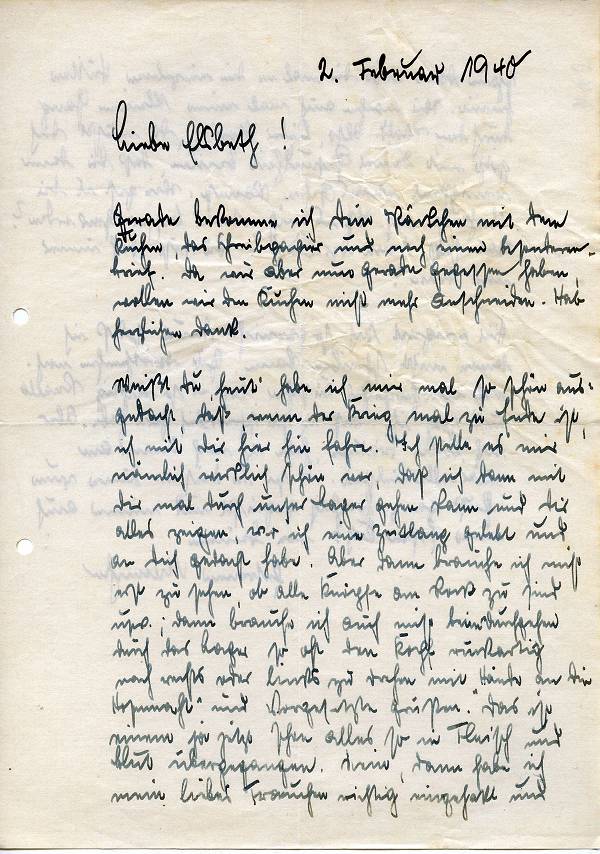 2. Februar 1940
Liebe Elsbeth!
Gerade bekomme ich Dein Päckchen mit dem
Kuchen, das Schreibpapier und noch einen besonderen
brief. Da wir aber nun gerade gegessen haben,
wollen wir den Kuchen nicht mehr anschneiden. Hab
herzlichen Dank.
Weißt Du, heut' habe ich mir mal so schön aus-
gedacht, daß, wenn der Krieg mal zu Ende ist,
ich mit Dir hier hin fahre. Ich stelle es mir
nämlich wirklich schön vor, daß ich dann mit
Dir mal durch unser Lager gehen kann und Dir
alles zeigen, wo ich eine zeitlang gelebt und
an Dich gedacht habe. Aber dann brauche ich nicht
erst zu sehen, ob alle Knöpfe am Rock zu sind
usw.; dann brauche ich auch nicht beim durchgehen
durch das Lager so oft den Kopf ruckartig
nach rechts oder links zu drehen mit Hände an die
Hosennaht" und Vorgesetzte grüßen. Das ist
einem ja jetzt schon alles so in Fleisch und
blut übergegangen. Denn, dann habe ich
mein liebes Frauchen richtig eingehakt und